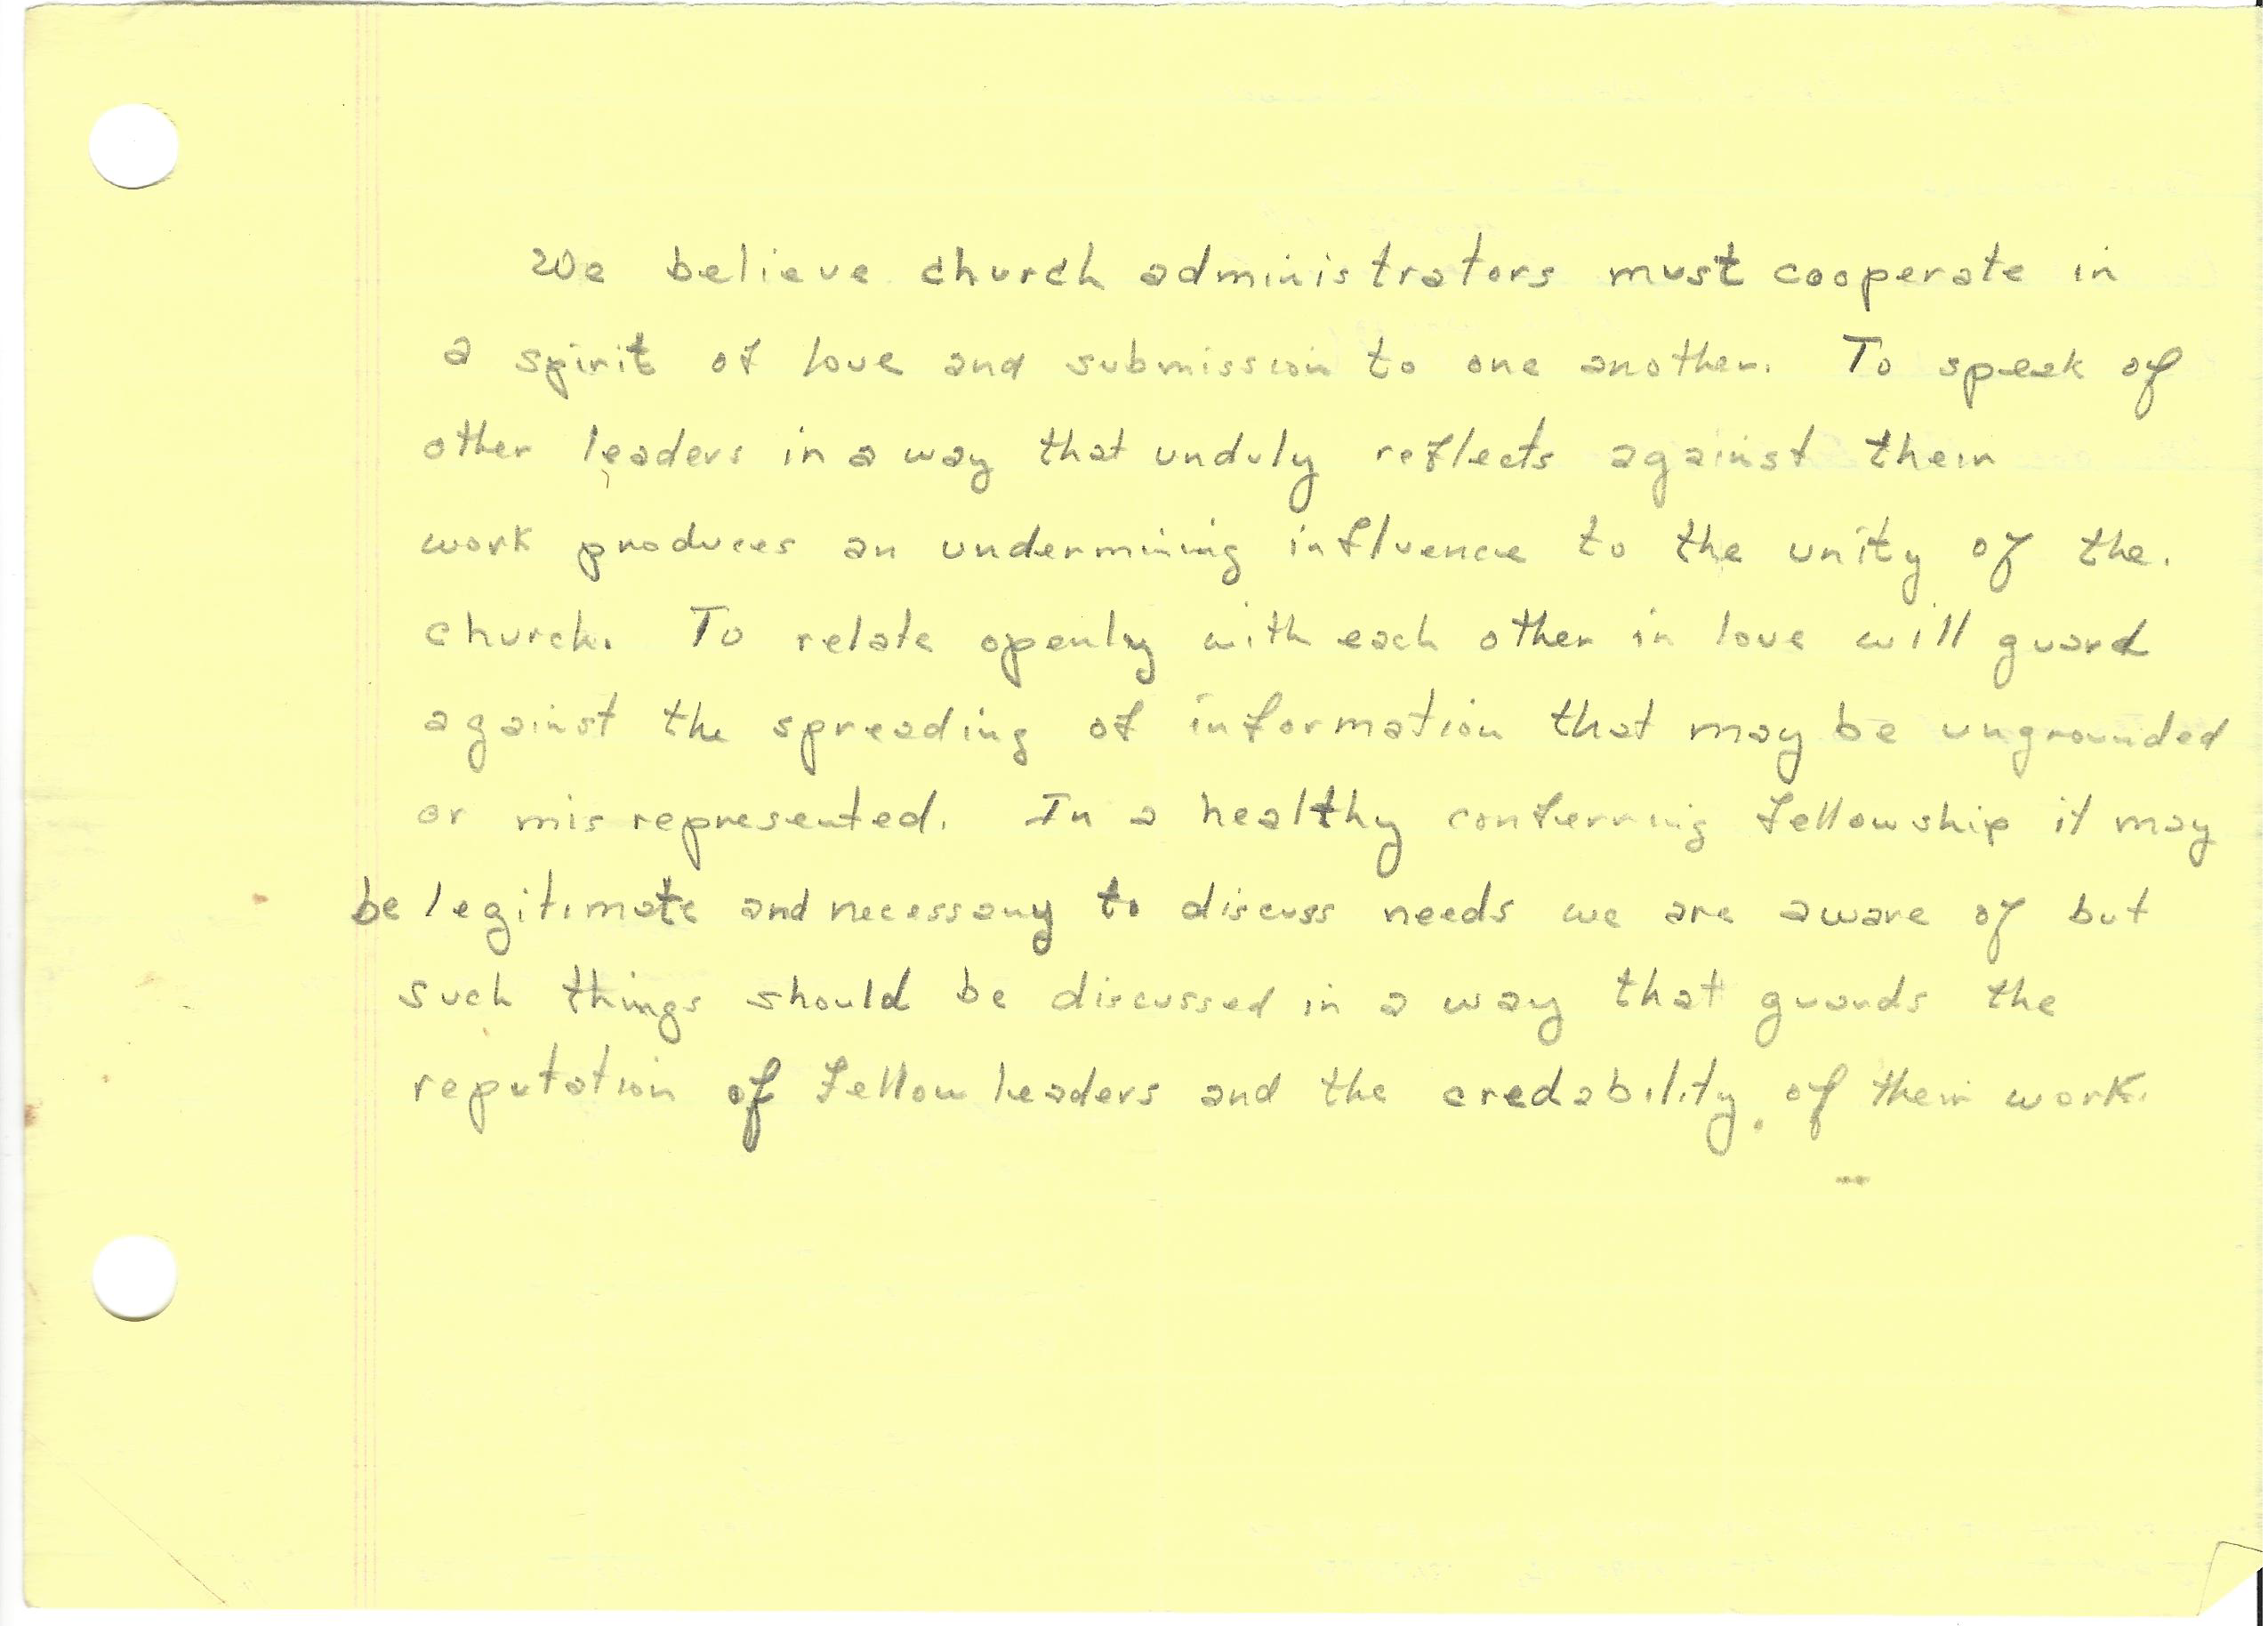 We believe church administrators must cooperate in
a spirit of love and submission to one another. To speak of
other leaders in a way that unduly reflects against their
work produces an undermining influence to the unity of the.
church. To relate openly with each other in love will guard
against the spreading of information that may be ungrounded
or mis represented. In a healthy conferring fellowship it may
be legitimate and necessary to discuss needs we are aware of but
such things should be discussed in a way that guards the
reputation of fellow leaders and the credability. of their work.